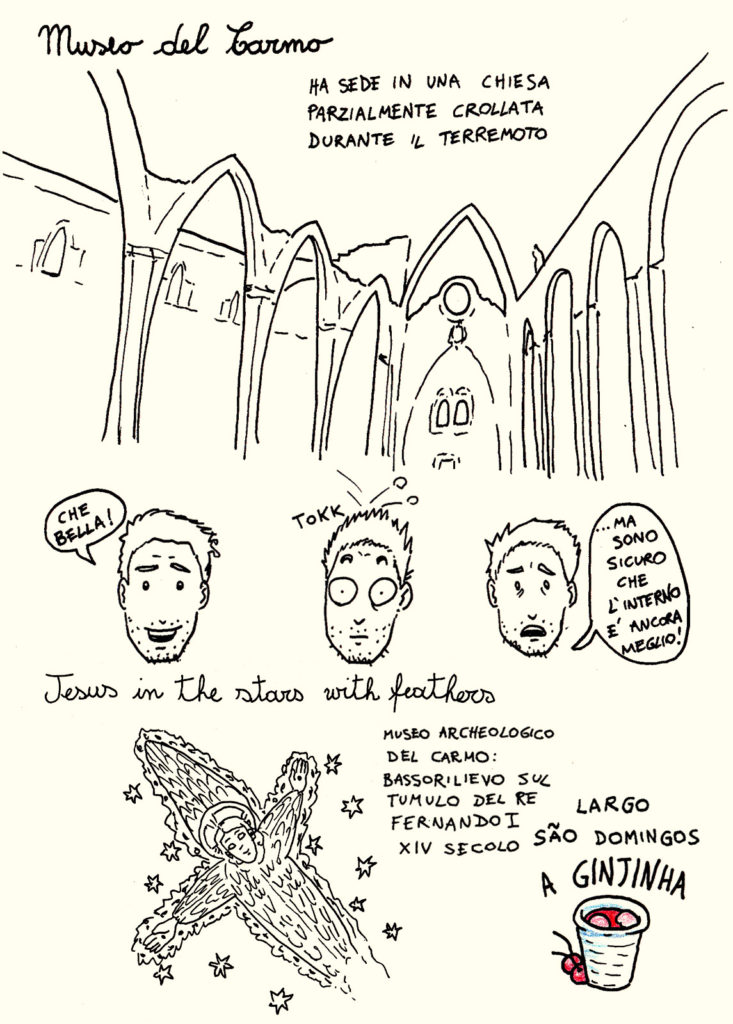 Museo del Carmo
HA SEDE IN UNA CHIESA
PARZIALMENTE CROLLATA
DURANTE IL TERREMOTO
CHE
BELLA!
TOKK
...MA
SONO
SICURO
CHE
L'INTERNO
E' ANCORA
MEGLIO!
Jesus in the stars with feathers
MUSEO ARCHEOLOGICO
DEL CARMO:
BASSORILIEVO SUL
TUMULO DEL RE
FERNANDO I
XIV SECOLO
LARGO
SÃO DOMINGOS
A GINJINHA